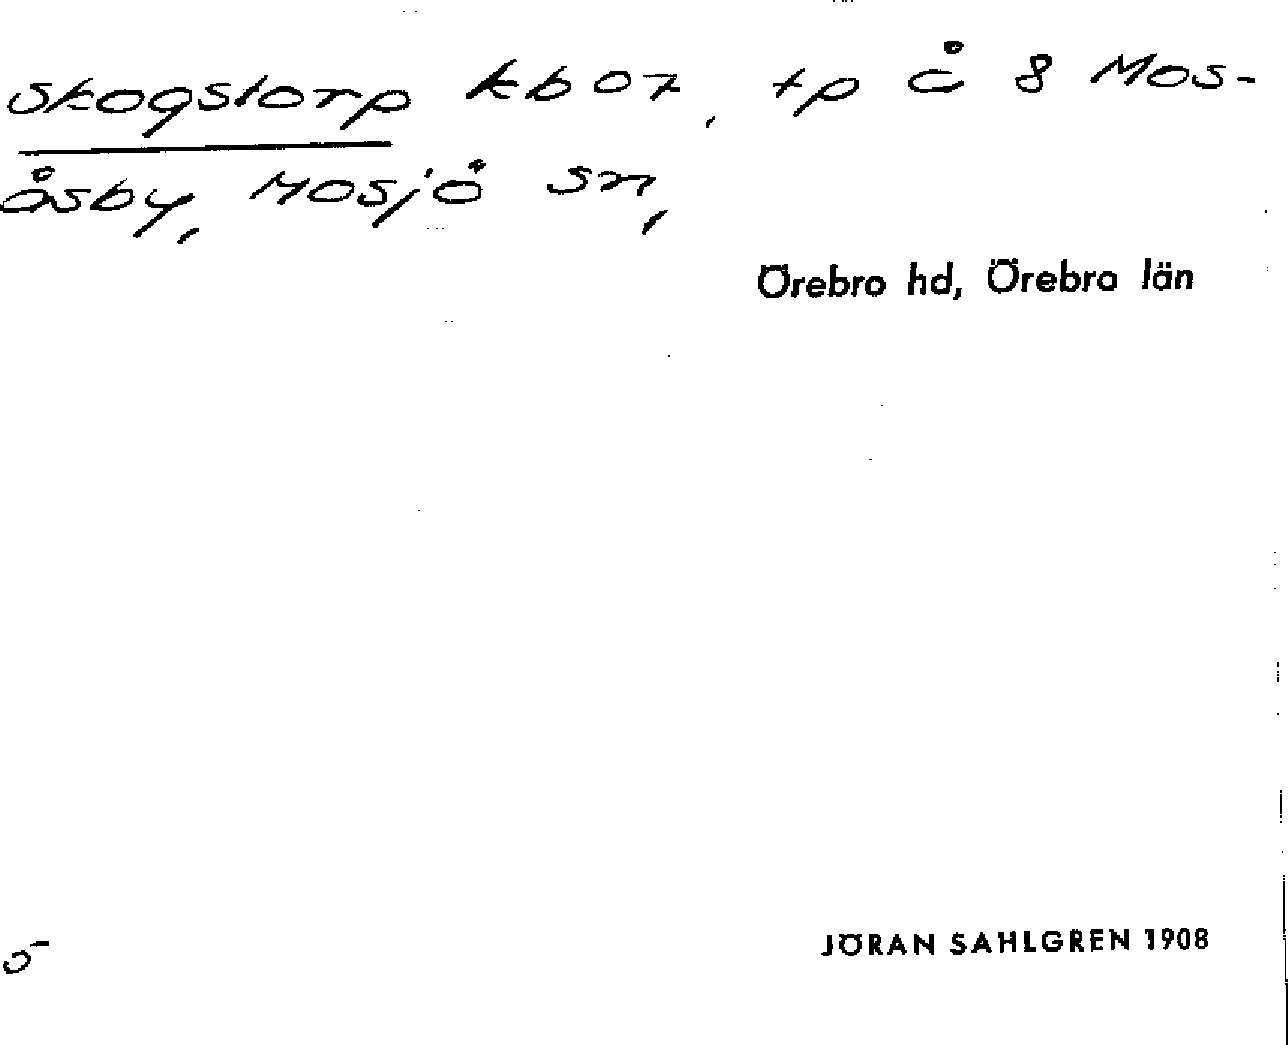 Skogstorp kb 07, tp å 8 Mos-
åsby, Mosjö sn,
Örebro hd, Örebro län
JÖRAN SAHLGREN 1908